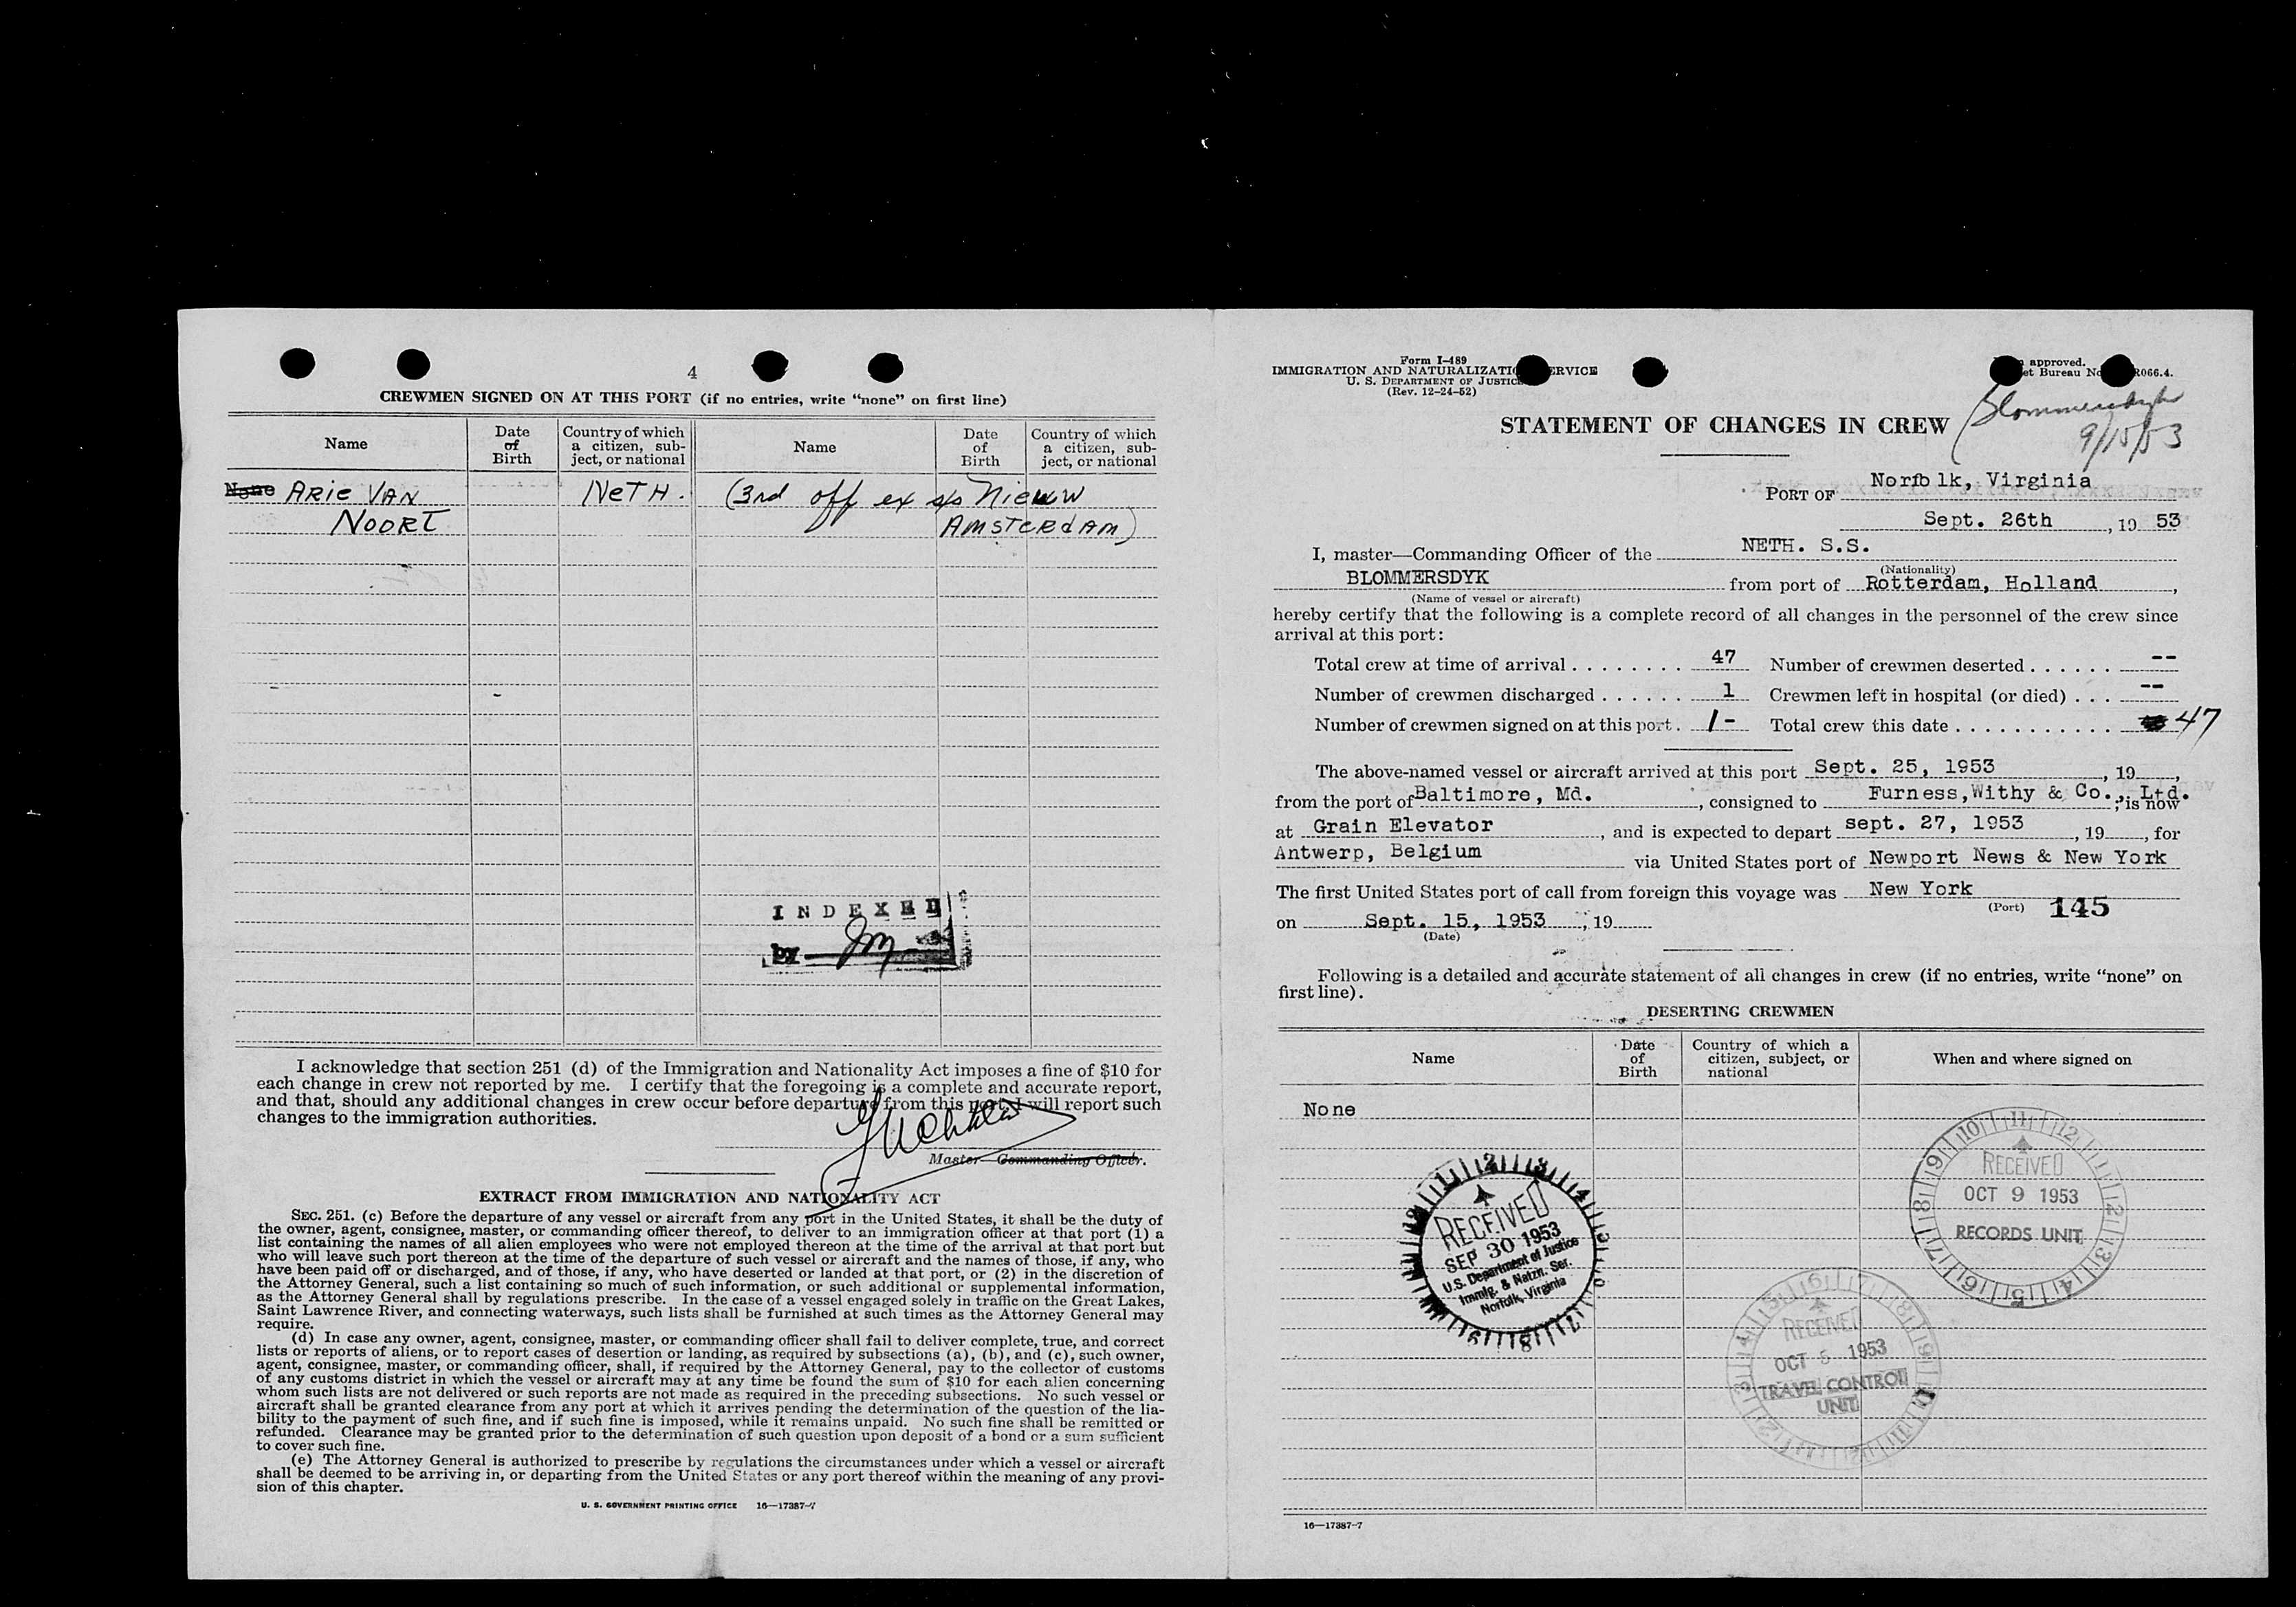 4
CREWMEN SIGNED ON AT THIS PORT (if no entries, write “none” on first line)
Name
Date of Birth
Country of which a citizen, subject, or national
Name
Date of Birth
Country of which a citizen, subject, or national
None ARIE VAN NETH. (3rd off ex s/s Nieuw
NOORT AMSTERDAM)
INDEXED
by
I acknowledge that section 251 (d) of the Immigration and Nationality Act imposes a fine of $10 for
each change in crew not reported by me. I certify that the foregoing is a complete and accurate report,
and that, should any additional changes in crew occur before departure from this port, I will report such
changes to the immigration authorities.
Master—Commanding Officer.
EXTRACT FROM IMMIGRATION AND NATIONALITY ACT
SEC. 251. (c) Before the departure of any vessel or aircraft from any port in the United States, it shall be the duty of
the owner, agent, consignee, master, or commanding officer thereof, to deliver to an immigration officer at that port (1) a
list containing the names of all alien employees who were not employed thereon at the time of the arrival at that port but
who will leave such port thereon at the time of the departure of such vessel or aircraft and the names of those, if any, who
have been paid off or discharged, and of those, if any, who have deserted or landed at that port, or (2) in the discretion of
the Attorney General, such a list containing so much of such information, or such additional or supplemental information,
as the Attorney General shall by regulations prescribe. In the case of a vessel engaged solely in traffic on the Great Lakes,
Saint Lawrence River, and connecting waterways, such lists shall be furnished at such times as the Attorney General may
require.
(d) In case any owner, agent, consignee, master, or commanding officer shall fail to deliver complete, true, and correct
lists or reports of aliens, or to report cases of desertion or landing, as required by subsections (a), (b), and (c), such owner,
agent, consignee, master, or commanding officer, shall, if required by the Attorney General, pay to the collector of customs
of any customs district in which the vessel or aircraft may at any time be found the sum of $10 for each alien concerning
whom such lists are not delivered or such reports are not made as required in the preceding subsections. No such vessel or
aircraft shall be granted clearance from any port at which it arrives pending the determination of the question of the lia-
bility to the payment of such fine, and if such fine is imposed, while it remains unpaid. No such fine shall be remitted or
refunded. Clearance may be granted prior to the determination of such question upon deposit of a bond or a sum sufficient
to cover such fine.
(e) The Attorney General is authorized to prescribe by regulations the circumstances under which a vessel or aircraft
shall be deemed to be arriving in, or departing from the United States or any port thereof within the meaning of any provi-
sion of this chapter.
U. S. GOVERNMENT PRINTING OFFICE 16—17387-7
Form I-489
IMMIGRATION AND NATURALIZATION SERVICE
U. S. DEPARTMENT OF JUSTICE
(Rev. 12-24-52)
approved.
et Bureau No. R066.4.
STATEMENT OF CHANGES IN CREW
Blommersdyk
9/15/53
PORT OF Norfolk, Virginia
Sept. 26th, 19 53
I, master—Commanding Officer of the NETH. S.S.
(Nationality)
BLOMMERSDYK from port of Rotterdam, Holland,
(Name of vessel or aircraft)
hereby certify that the following is a complete record of all changes in the personnel of the crew since
arrival at this port:
Total crew at time of arrival . . . . . . . . 47 Number of crewmen deserted . . . . . . --
Number of crewmen discharged . . . . . . 1 Crewmen left in hospital (or died) . . . --
Number of crewmen signed on at this port . 1 - Total crew this date . . . . . . . . . . . 47
The above-named vessel or aircraft arrived at this port Sept. 25, 1953, 19 ,
from the port of Baltimore, Md., consigned to Furness,Withy & Co., Ltd.; is now
at Grain Elevator, and is expected to depart sept. 27, 1953, 19 , for
Antwerp, Belgium via United States port of Newport News & New York
The first United States port of call from foreign this voyage was New York
(Port) 145
on Sept. 15, 1953, 19
(Date)
Following is a detailed and accurate statement of all changes in crew (if no entries, write “none” on
first line).
DESERTING CREWMEN
Name
Date of Birth
Country of which a citizen, subject, or national
When and where signed on
None
RECEIVED
SEP 30 1953
U.S. Department of Justice
Immig. & Natzn. Ser.
Norfolk, Virginia
RECEIVED
OCT 9 1953
RECORDS UNIT
RECEIVED
OCT 5 1953
TRAVEL CONTROL
UNIT
16—17387-7